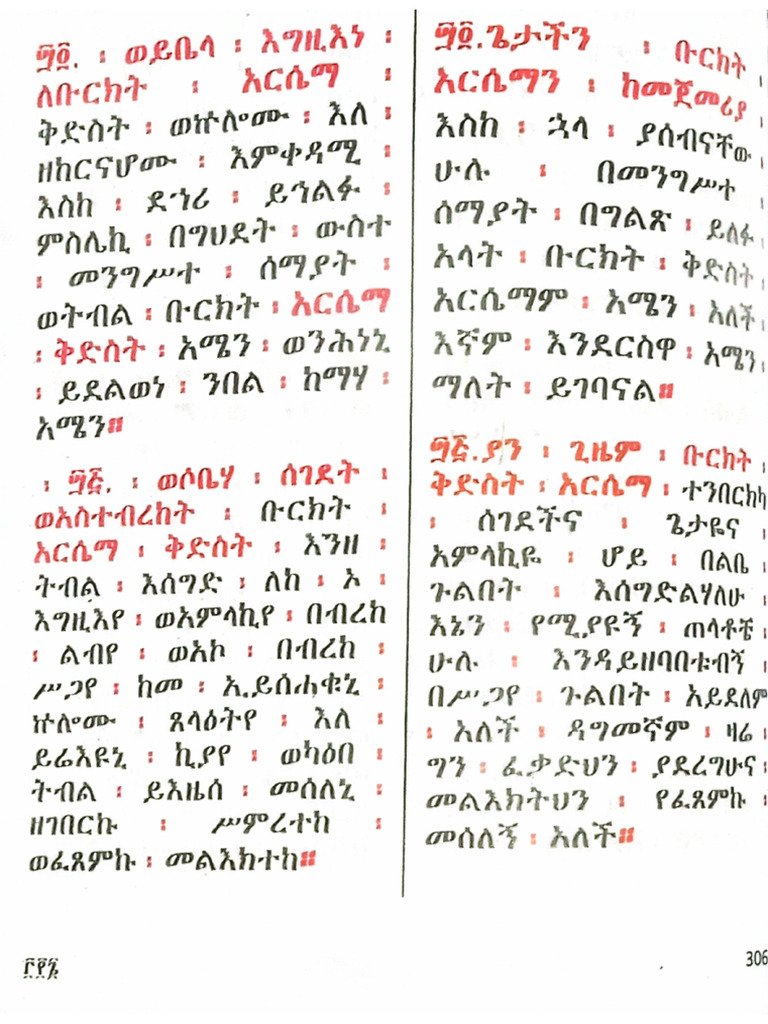 ፶፬. ፡ ወይቤላ ፡ እግዚእነ ፡
ለቡርክት ፡ አርሴማ ፡
ቅድስት ፡ ወኵሎሙ ፡ እለ ፡
ዘከርናሆሙ ፡ እምቀዳሚ ፡
እስከ ፡ ደኀሪ ፡ ይኀልፉ ፡
ምስሌኪ ፡ በግሀደት ፡ ውስተ
፡ መንግሥተ ፡ ሰማያት ፡
ወትብል ፡ ቡርክት ፡ አርሴማ
፡ ቅድስት ፡ አሜን ፡ ወንሕነኒ
፡ ይደልወነ ፡ ንበል ፡ ከማሃ ፡
አሜን።
፡ ፶፭. ፡ ወሶቤሃ ፡ ሰገደት ፡
ወአስተብረከት ፡ ቡርክት ፡
አርሴማ ፡ ቅድስት ፡ እንዘ ፡
ትብል ፡ እሰግድ ፡ ለከ ፡ ኦ ፡
እግዚእየ ፡ ወአምላኪየ ፡ በብረከ
፡ ልብየ ፡ ወአኮ ፡ በብረከ ፡
ሥጋየ ፡ ከመ ፡ ኢይሰሐቁኒ ፡
ኵሎሙ ፡ ጸላዕትየ ፡ እለ ፡
ይሬእዩኒ ፡ ኪያየ ፡ ወካዕበ ፡
ትብል ፡ ይእዜሰ ፡ መሰለኒ ፡
ዘገበርኩ ፡ ሥምረተከ ፡
ወፈጸምኩ ፡ መልእክተከ።
፶፬.ጌታችን ፡ ቡርክት ፡
አርሴማን ፡ ከመጀመሪያ ፡
እስከ ፡ ኋላ ፡ ያሰብናቸው ፡
ሁሉ ፡ በመንግሥተ ፡
ሰማያት ፡ በግልጽ ፡ ይለፉ ፡
አላት ፡ ቡርክት ፡ ቅድስት ፡
አርሴማም ፡ አሜን ፡ አለች ፡
እኛም ፡ እንደርስዋ ፡ አሜን ፡
ማለት ፡ ይገባናል።
፶፭.ያን ፡ ጊዜም ፡ ቡርክት ፡
ቅድስት ፡ አርሴማ ፡ ተንበርክካ
፡ ሰገደችና ፡ ጌታዬና ፡
አምላኪዬ ፡ ሆይ ፡ በልቤ ፡
ጉልበት ፡ እሰግድልሃለሁ ፡
እኔን ፡ የሚያዩኝ ፡ ጠላቶቼ ፡
ሁሉ ፡ እንዳይዘባበቱብኝ ፡
በሥጋየ ፡ ጉልበት ፡ አይደለም
፡ አለች ፡ ዳግመኛም ፡ ዛሬ ፡
ግን ፡ ፈቃድህን ፡ ያደረግሁና ፡
መልእክትህን ፡ የፈጸምኩ ፡
መሰለኝ ፡ አለች።
306